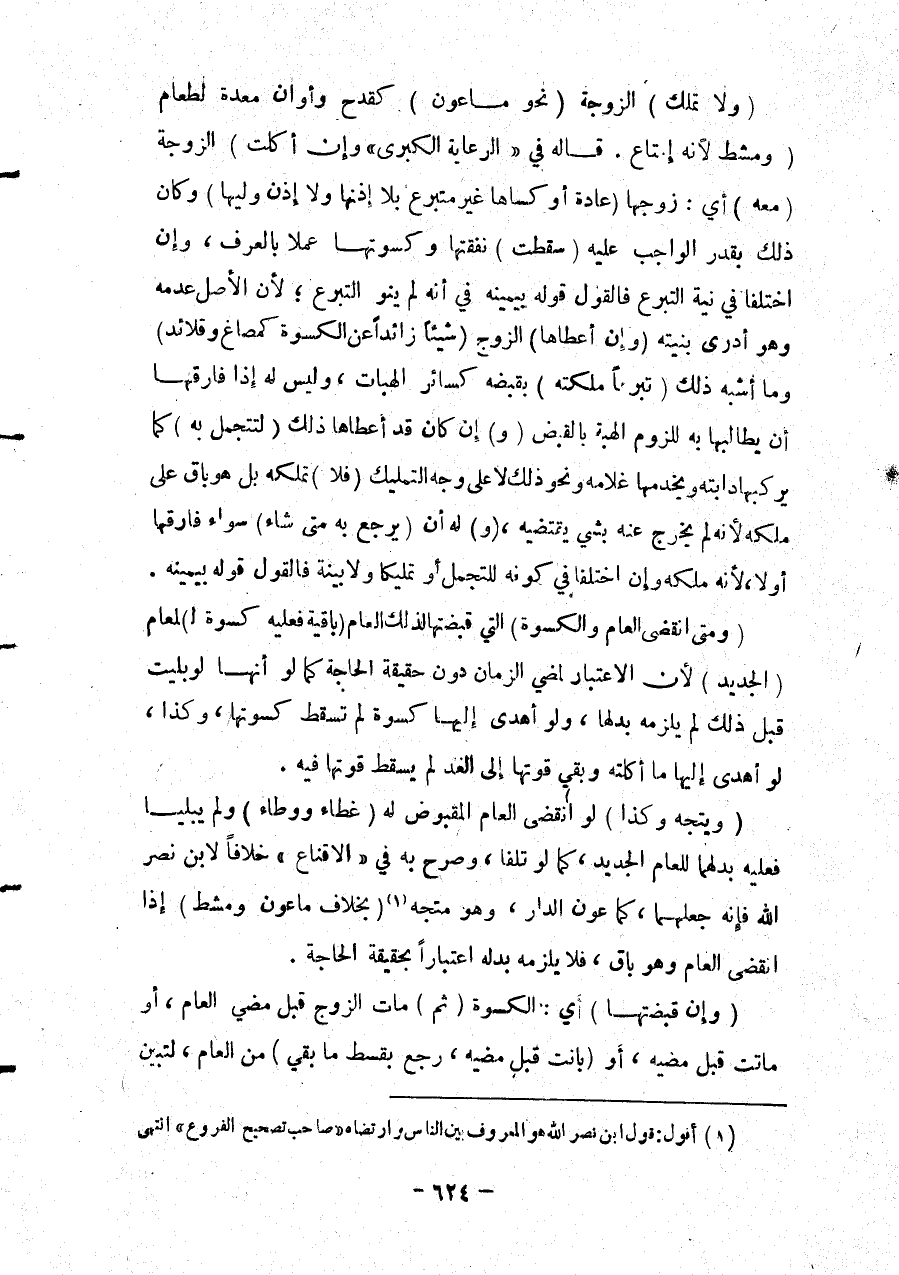 ( ولا تملك ) الزوجة ( نحو مــاعون ) كقدح وأوان معدة لطعام
( ومشط لأنه إمتاع . قــاله في « الرعاية الكبرى» وإن أكلت ) الزوجة
( معه ) أي : زوجها (عادة أو كساها غير متبرع بلا إذنها ولا إذن وليها ) وكان
ذلك بقدر الواجب عليه ( سقطت ) نفقتها وكسوتهــا عملا بالعرف ، وإن
اختلفا في نية التبرع فالقول قوله بيمينه في أنه لم ينو التبرع ؛ لأن الأصل عدمه
وهو أدرى بنيته (وإن أعطاها) الزوج (شيئاً زائداً عن الكسوة كمصاغ وقلائد)
وما أشبه ذلك ( تبرعاً ملكته ) بقبضه كسائر الهبات ، وليس له إذا فارقهــا
أن يطالبها به للزوم الهبة بالقبض ( و) إن كان قد أعطاها ذلك ( لتتجمل به ) كما
يركبها دابته ويخدمها غلامه ونحو ذلك لا على وجه التمليك (فلا ) تملكه بل هو باق على
ملكه لأنه لم يخرج عنه بشي يقتضيه ، (و) له أن ( يرجع به متى شاء) سواء فارقها
أولا ، لأنه ملكه وإن اختلفا في كونه للتجمل أو تمليكا ولا بينة فالقول قوله بيمينه .
( ومتى انقضى العام والكسوة) التي قبضتها لذلك العام (باقية فعليه كسوة ا)لعام
( الجديد ) لأن الاعتبار لمضي الزمان دون حقيقة الحاجة كما لو أنهــا لو بليت
قبل ذلك لم يلزمه بدلها ، ولو أهدى إليهــا كسوة لم تسقط كسوتها ، وكذا ،
لو أهدى إليها ما أكلته وبقي قوتها إلى الغد لم يسقط قوتها فيه .
( ويتجه وكذا ) لو أنقضى العام المقبوض له ( غطاء ووطاء ) ولم يبليــا
فعليه بدلهما للعام الجديد ، كما لو تلفا ، وصرح به في « الاقناع » خلافاً لابن نصر
الله فإنه جعلهــما ، كماعون الدار ، وهو متجه (١) ( بخلاف ماعون ومشط ) إذا
انقضى العام وهو باق ، فلا يلزمه بدله اعتباراً بحقيقة الحاجة .
( وإن قبضتهــا ) أي : الكسوة ( ثم ) مات الزوج قبل مضي العام ، أو
ماتت قبل مضيه ، أو (بانت قبل مضيه ، رجع بقسط ما بقي ) من العام ، لتبين
(١) أقول : قول ابن نصر الله هو المعروف بين الناس وارتضاه «صاحب تصحيح الفروع» انتهى
- ٦٢٤ -